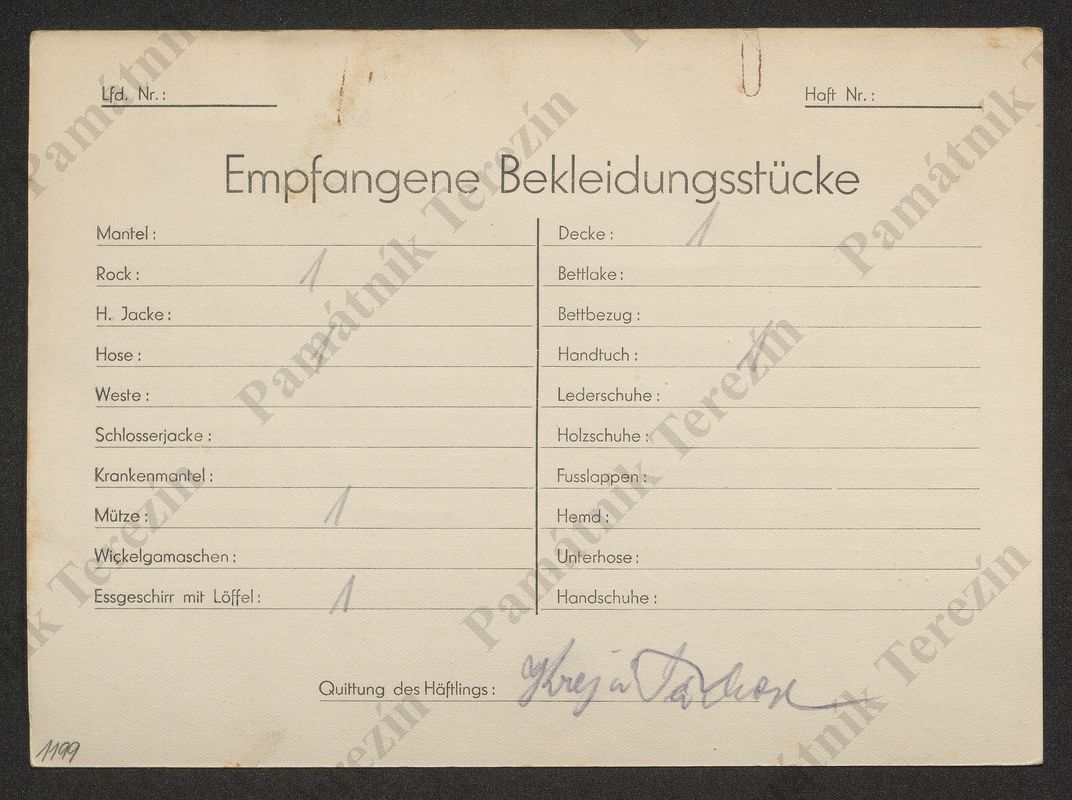 Lfd. Nr.:
Haft Nr.:
Empfangene Bekleidungsstücke
Mantel:
Rock: 1
H. Jacke:
Hose: 1
Weste:
Schlosserjacke:
Krankenmantel:
Mütze: 1
Wickelgamaschen:
Essgeschirr mit Löffel: 1
Decke: 1
Bettlake:
Bettbezug:
Handtuch: 1
Lederschuhe:
Holzschuhe:
Fusslappen:
Hemd:
Unterhose:
Handschuhe:
Quittung des Häftlings:
1199
Památník Terezín